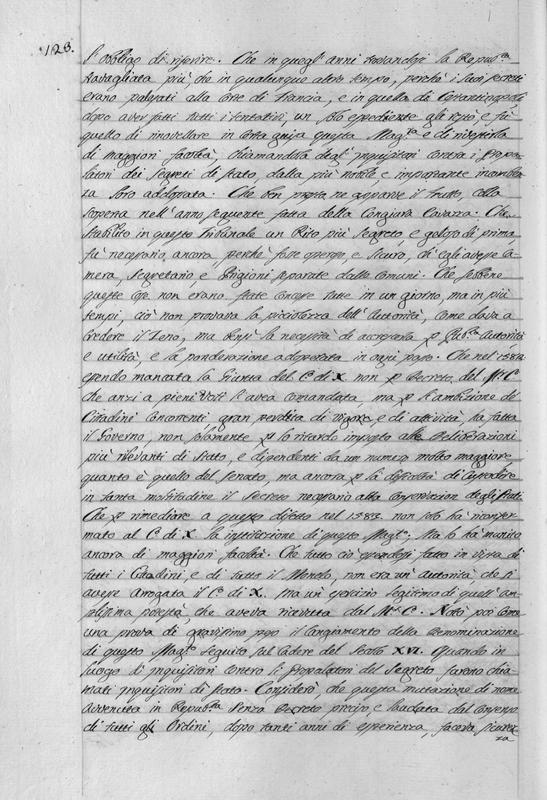 128.
l'obbligo di riferire. Che in quegl'anni trovandosi la Repub.ca
travagliata più, che in qualunque altro tempo, perché i suoi secreti
erano palesati alla Corte di Francia, e in quella di Costantinopoli
dopo aver fatti tutti i tentativi, un solo espediente gli restò e fù
quello di innovellare in certa guisa questo Mag.to e di rivestirlo
di maggiori facoltà, chiamandoli degl'Inquisitori contra i Propa-
latori dei Segreti di Stato, dalla più nobile, e importante incomben-
za loro addossata. Che ben presto ne apparve il frutto, colla
scoperta nell'anno seguente fatta della Congiura Cavazza. Che
stabilito in questo Tribunale un Rito più segreto, e geloso di prima,
fù necessario, ancora, perché fosse spedito, e sicuro, ch'egli avesse Ca-
mera, Segretario, e Prigioni separate dalle comuni. Che sebbene
queste cose non erano state concesse tutte in un giorno, ma in più
tempi, ciò non provava la picciolezza dell'Autorità, come dava a
credere il Zeno, ma bensì la necessità di accrescerla p Pub.ca Autorità
e utilità, e la ponderazione adoprata in ogni passo. Che nel 1582
essendo mancata la Giunta del C di X non p Decreto del M.r C
che anzi a pieni Voti l'avea comandata, ma p l'ambizione de'
Cittadini Concorrenti, gran perdita di vigore, e di attività, ha fatta
il Governo, non solamente p lo ritardo imposto alle Deliberazioni
più rilevanti di Stato, e dipendenti da un numero molto maggiore
quanto è quello del Senato, ma ancora p la difficoltà di custodire
in tanta moltitudine il Secreto necessario alla Conservazion degli Stati.
Che p rimediare a questo difetto nel 1583 non solo hà riconfer-
mato al C di X la instituzione di questo Mag.to; Ma lo hà munito
ancora di maggiori facoltà. Che tutto ciò essendosi fatto in vista di
tutti i Cittadini, e di tutto il Mondo, non era un'Autorità che si
avesse arrogata il C di X. ma un esercizio legitimo di quell'am-
plissima potestà, che aveva ricevuta dal M.r C. Notò poi come
una prova di gravissimo peso il cangiamento della Denominazione
di questo Mag.to seguito sul cadere del Secolo XVI. Quando in
luogo di Inquisitori contro li Propalatori del Segreto furono chia-
mati Inquisitori di Stato. Considerò che questa mutazione di nome
avvenuta in Repub.ca senza Decreto preciso, e laudata dal Consenso
di tutti gli Ordini, dopo tanti anni di esperienza, faceva sicurez-
za